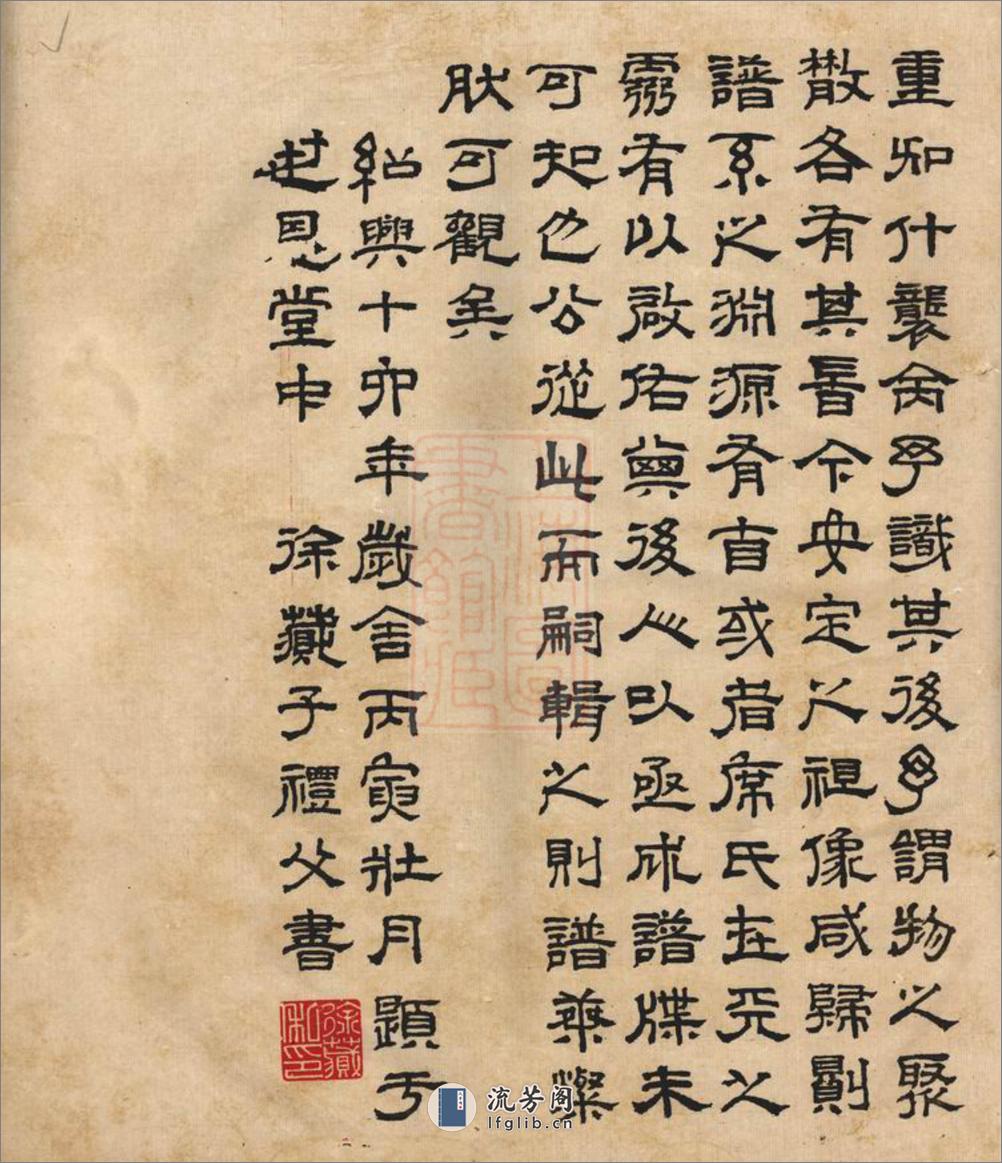 重加什襲命予識其後予謂物之聚
散各有其時今安定之祖像咸歸則
譜系之淵源有自或者席氏在天之
靈有以啟佑與後人以亟成譜牒未
可知也公從此而嗣輯之則譜業燦
然可觀矣
紹興十六年歲舍丙寅壯月題于
世恩堂中 徐蕆子禮父書
徐蕆私印
流芳阁
lfglib.cn